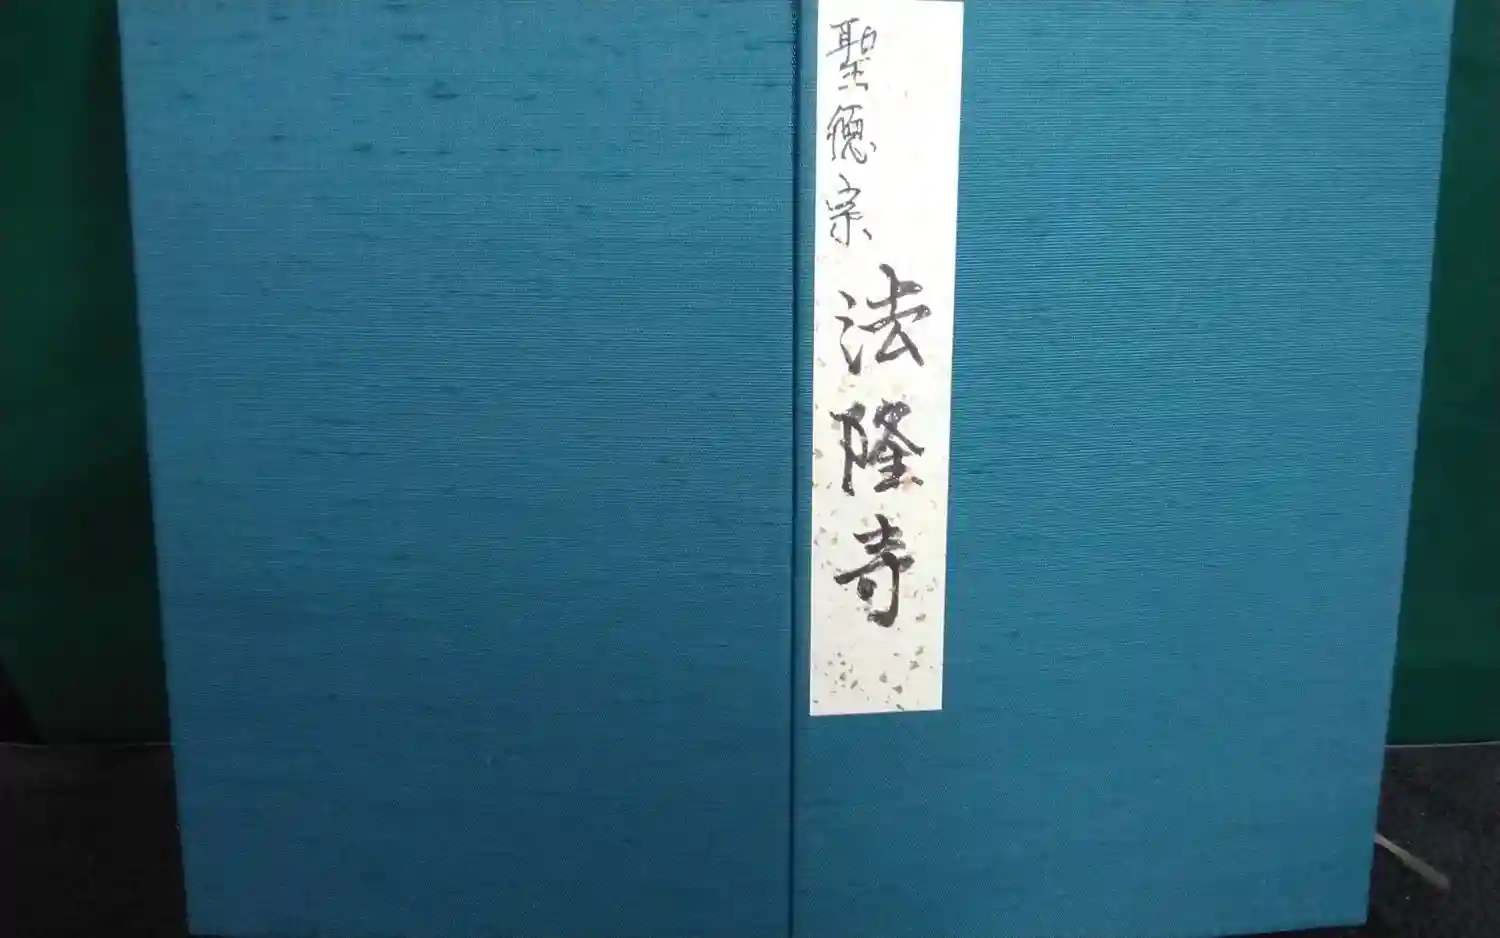 聖徳宗 法隆寺